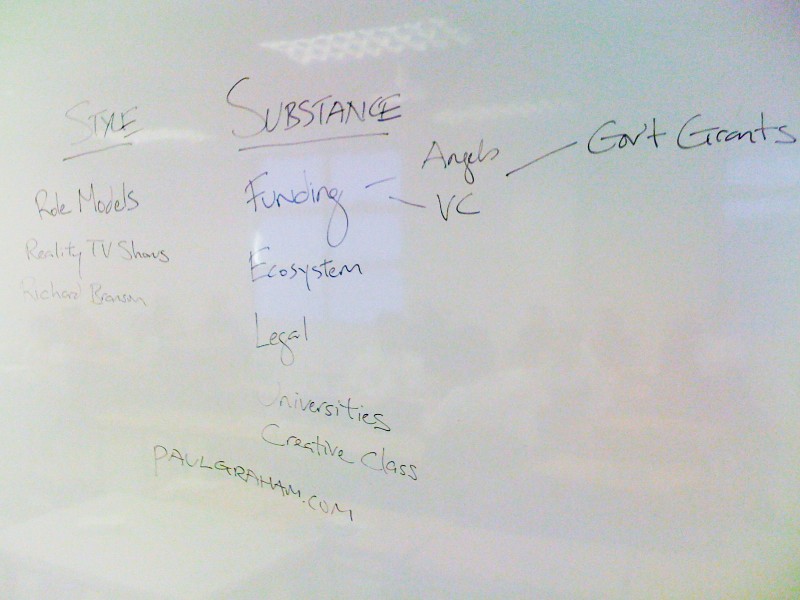 STYLE
Role Models
Reality TV Shows
Richard Branson
SUBSTANCE
Funding
Angels
VC
Gov't Grants
Ecosystem
Legal
Universities
Creative Class
PAULGRAHAM.COM